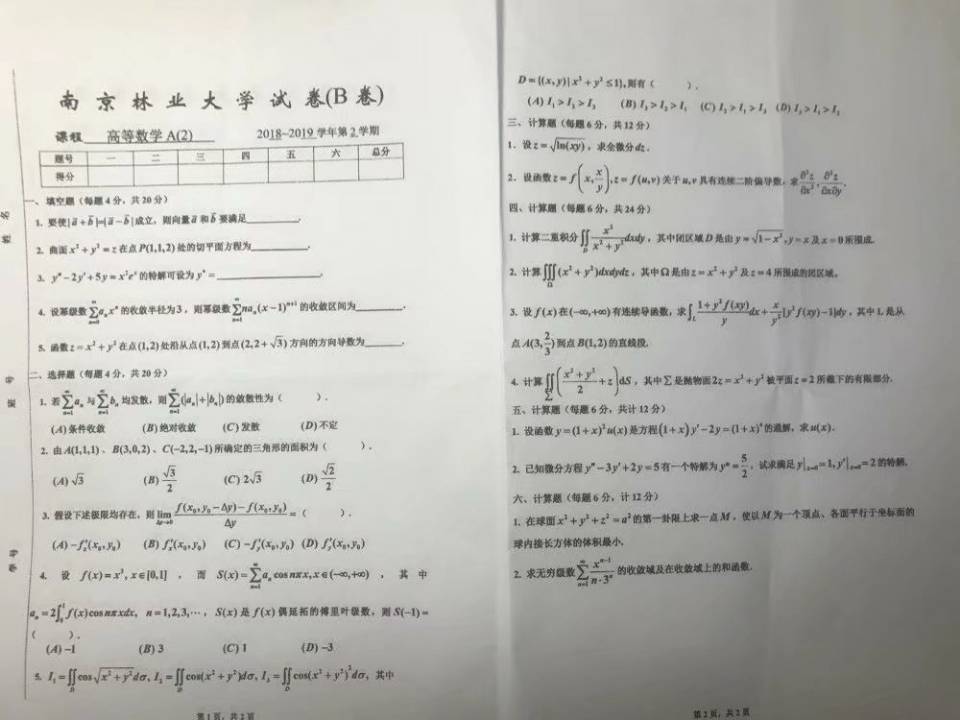 南京林业大学试卷(B卷)
课程 高等数学A(2) 2018~2019学年第2学期
题号 一 二 三 四 五 六 总分
得分
一、填空题（每题4分，共20分）
1. 要使|a⃗+b⃗|=|a⃗−b⃗|成立，则向量a⃗和b⃗要满足________.
2. 曲面x²+y²=z在点P(1,1,2)处的切平面方程为________.
3. y″−2y′+5y=x²eˣ的特解可设为y*=________.
4. 设幂级数∑_{n=0}^{∞}aₙxⁿ的收敛半径为3，则幂级数∑_{n=1}^{∞}naₙ(x−1)ⁿ⁺¹的收敛区间为________.
5. 函数z=x²+y²在点(1,2)处沿从点(1,2)到点(2,2+√3)方向的方向导数为________.
二、选择题（每题4分，共20分）
1. 若∑_{n=1}^{∞}aₙ与∑_{n=1}^{∞}bₙ均发散，则∑_{n=1}^{∞}(|aₙ|+|bₙ|)的敛散性为（ ）.
(A)条件收敛 (B)绝对收敛 (C)发散 (D)不定
2. 由A(1,1,1)、B(3,0,2)、C(−2,2,−1)所确定的三角形的面积为（ ）.
(A) √3 (B) √3/2 (C) 2√3 (D) √2/2
3. 假设下述极限均存在，则lim_{Δy→0} [f(x₀,y₀−Δy)−f(x₀,y₀)]/Δy=（ ）.
(A) −fₓ′(x₀,y₀) (B) fₓ′(x₀,y₀) (C) −f_y′(x₀,y₀) (D) f_y′(x₀,y₀)
4. 设 f(x)=x³, x∈[0,1] ，而 S(x)=∑_{n=1}^{∞}aₙcos nπx, x∈(−∞,+∞) ，其中
aₙ=2∫₀¹f(x)cos nπxdx, n=1,2,3,⋯，S(x)是f(x)偶延拓的傅里叶级数，则S(−1)=
（ ）.
(A) −1 (B) 3 (C) 1 (D) −3
5. I₁=∬_D cos√(x²+y²)dσ, I₂=∬_D cos(x²+y²)dσ, I₃=∬_D cos(x²+y²)²dσ，其中
第1页，共2页
D={(x,y)|x²+y²≤1}, 则有（ ）.
(A) I₁>I₂>I₃ (B) I₃>I₂>I₁ (C) I₂>I₁>I₃ (D) I₃>I₁>I₂
三、计算题（每题6分，共12分）
1. 设z=√ln(xy)，求全微分dz.
2. 设函数z=f(x, x/y), z=f(u,v)关于u,v具有连续二阶偏导数，求∂²z/∂x², ∂²z/∂x∂y.
四、计算题（每题6分，共24分）
1. 计算二重积分∬_D x²/(x²+y²)dxdy，其中闭区域D是由y=√(1−x²), y=x及x=0所围成.
2. 计算∭_Ω(x²+y²)dxdydz，其中Ω是由z=x²+y²及z=4所围成的闭区域。
3. 设f(x)在(−∞,+∞)有连续导函数，求∫_L [1+y²f(xy)]/y dx+x/y²[y²f(xy)−1]dy，其中L是从
点A(3, 2/3)到点B(1,2)的直线段.
4. 计算∬_Σ((x²+y²)/2+z)dS，其中Σ是抛物面2z=x²+y²被平面z=2所截下的有限部分.
五、计算题（每题6分，共计12分）
1. 设函数y=(1+x)²u(x)是方程(1+x)y′−2y=(1+x)⁴的通解，求u(x).
2. 已知微分方程y″−3y′+2y=5有一个特解为y*=5/2，试求满足y|ₓ₌₀=1, y′|ₓ₌₀=2的特解.
六、计算题（每题6分，计12分）
1. 在球面x²+y²+z²=a²的第一卦限上求一点M，使以M为一个顶点、各面平行于坐标面的
球内接长方体的体积最小.
2. 求无穷级数∑_{n=1}^{∞}xⁿ⁻¹/(n·3ⁿ)的收敛域及在收敛域上的和函数.
第2页，共2页
姓名
班号
学号